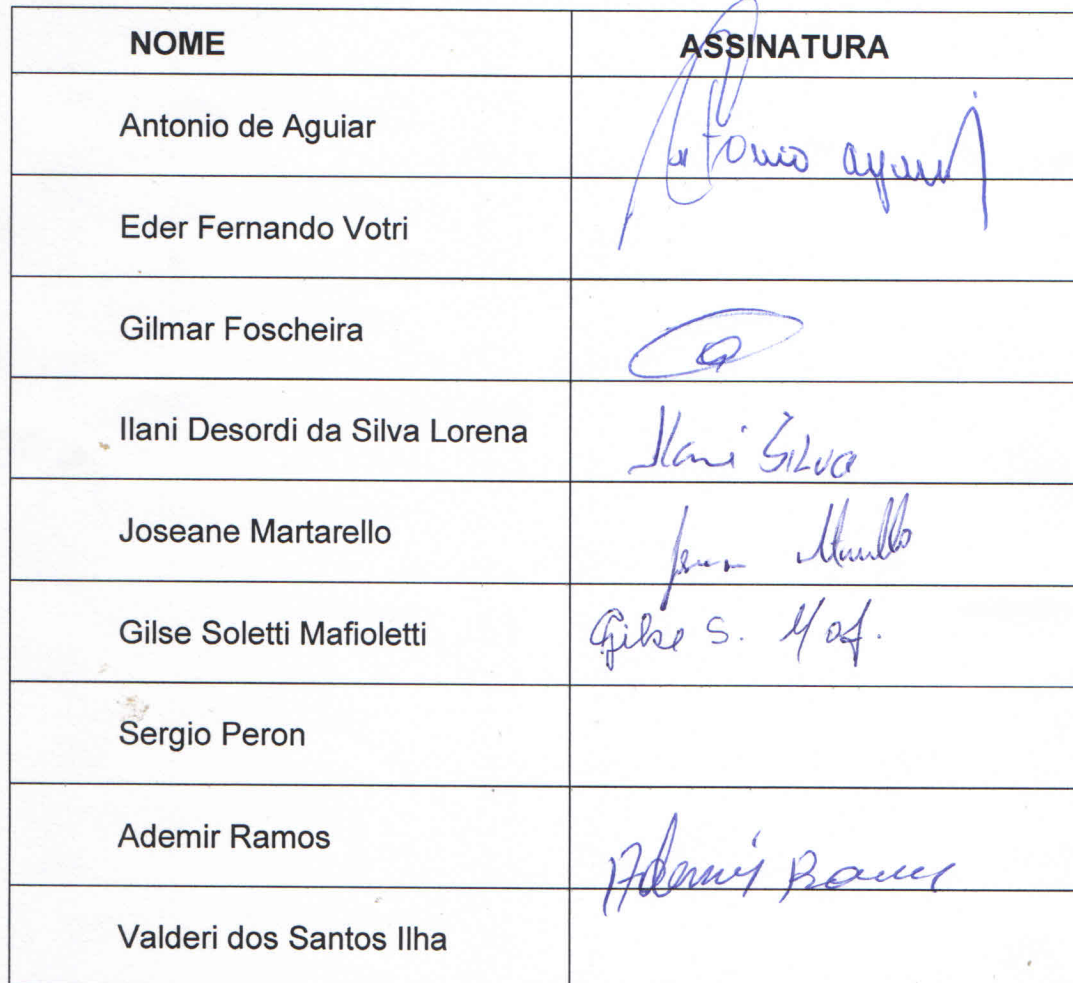 NOME ASSINATURA
Antonio de Aguiar Antonio Aguiar
Eder Fernando Votri
Gilmar Foscheira
Ilani Desordi da Silva Lorena Ilani Silva
Joseane Martarello
Gilse Soletti Mafioletti Gilse S. Maf.
Sergio Peron
Ademir Ramos Ademir Ramos
Valderi dos Santos Ilha